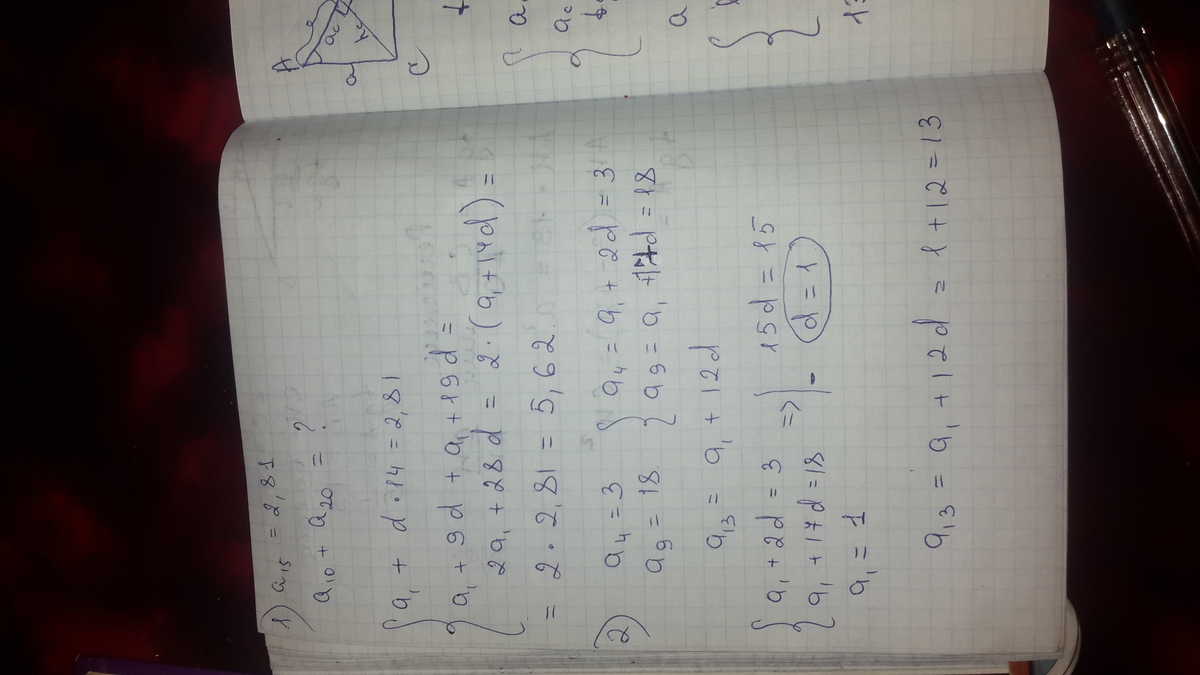 A
a
ac
hc
C
1) a₁₅ = 2,81
a₁₀ + a₂₀ = ?
{ a₁ + d·14 = 2,81
a₁ + 9d + a₁ + 19d =
2a₁ + 28d = 2·(a₁ + 14d) =
= 2·2,81 = 5,62
2) a₄ = 3 { a₄ = a₁ + 2d = 3
a₉ = 18 a₉ = a₁ + 17d = 18
a₁₃ = a₁ + 12d
{ a₁ + 2d = 3 15d = 15
a₁ + 17d = 18 => | - d = 1
a₁ = 1
a₁₃ = a₁ + 12d = 1 + 12 = 13